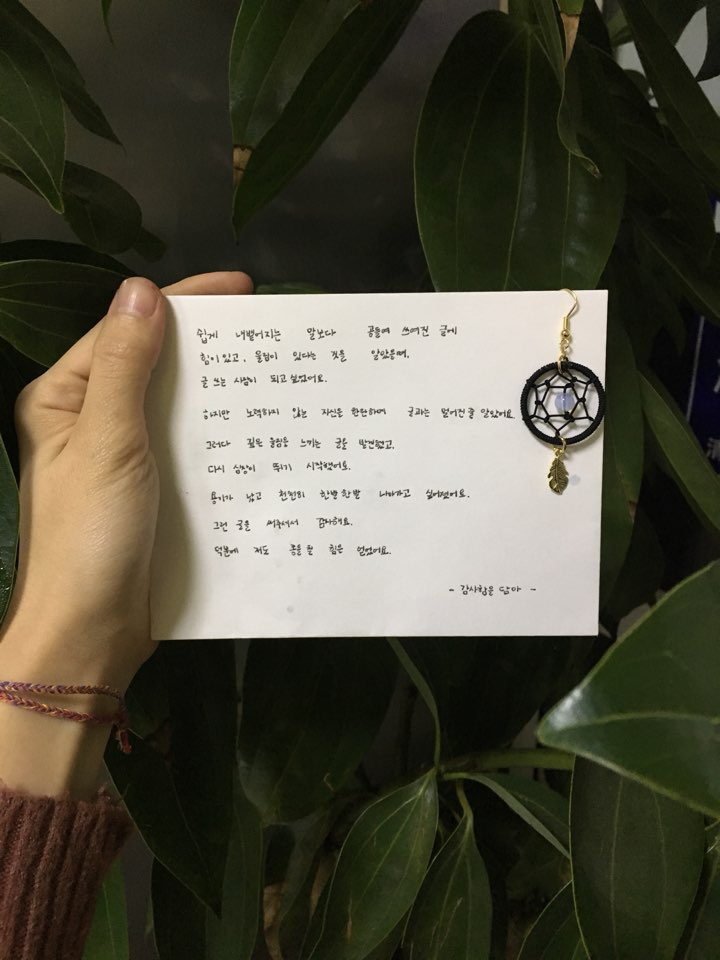 쉽게 내뱉어지는 말보다 공들여 쓰여진 글에
힘이 있고, 울림이 있다는 것을 알았을때,
글 쓰는 사람이 되고 싶었어요.
하지만 노력하지 않는 자신을 한탄하며 글과는 멀어진 줄 알았어요.
그러다 깊은 울림을 느끼는 글을 발견했고,
다시 심장이 뛰기 시작했어요.
용기가 났고 천천히 한발 한발 나아가고 싶어졌어요.
그런 글을 써주셔서 감사해요.
덕분에 저도 꿈을 꿀 힘을 얻었어요.
- 감사함을 담아 -